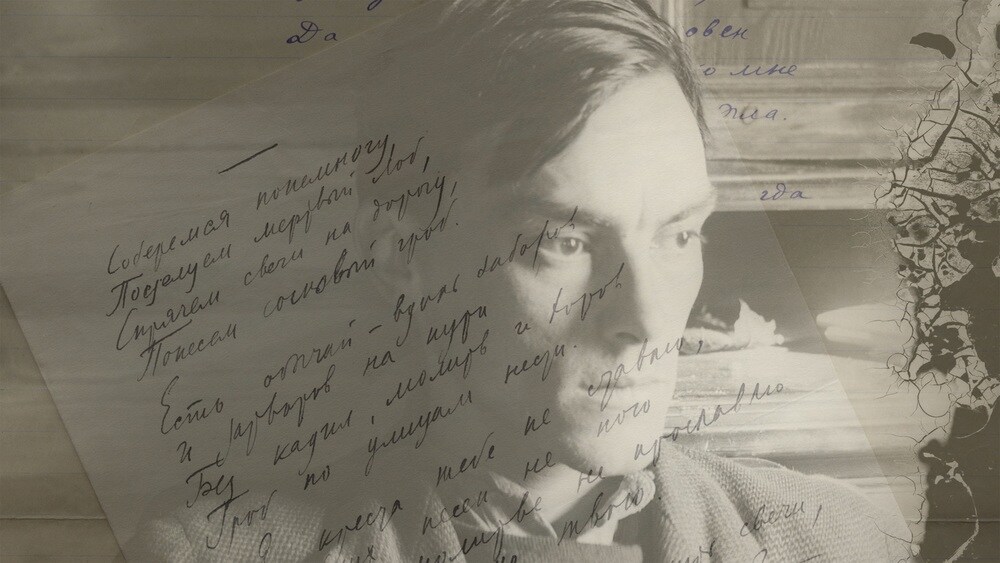 Да
овен
о мне
гда
Соберемся понемногу,
Поцелуем мертвый лоб,
Спрячем свечи на дорогу,
Понесем сосновый гроб.
Есть обычай вдоль заборов
И затворов на пути
Без кадил, молитв и хоров
Гроб по улицам нести.
Я креста тебе не ставлю,
песен не пою
молитве не прославлю
твою.
свечи,